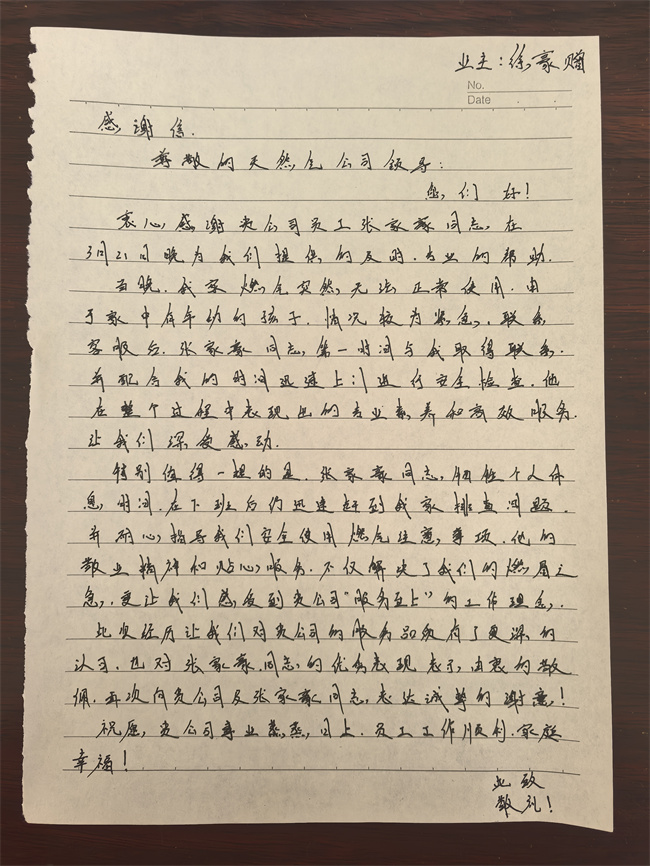 业主：徐豪赠
No.
Date
感谢信.
尊敬的天然气公司领导：
您们好！
衷心感谢贵公司员工张家豪同志，在
3月21日晚为我们提供的及时.专业的帮助.
当晚.我家燃气突然无法正常使用.由
于家中有年幼的孩子.情况较为紧急，联系
客服后.张家豪同志，第一时间与我取得联系.
并配合我的时间迅速上门进行安全检查.他
在整个过程中表现出的专业素养和高效服务.
让我们深受感动.
特别值得一提的是.张家豪同志，牺牲个人休
息时间.在下班后仍迅速赶到我家排查问题.
并耐心指导我们安全使用燃气注意事项.他的
敬业精神和贴心服务.不仅解决了我们的燃眉之
急，更让我们感受到贵公司"服务至上"的工作理念，
此次经历让我们对贵公司的服务品质有了更深的
认可.也对张家豪同志的优秀表现表示由衷的敬
佩.再次向贵公司及张家豪同志，表达诚挚的谢意！
祝愿，贵公司事业蒸蒸日上.员工工作顺利.家庭
幸福！
此致
敬礼！